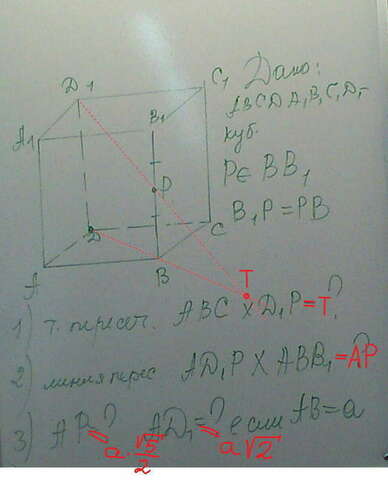 D1
C1
A1
B1
P
D
C
A
B
T
Дано:
ABCDA1B1C1D1-
куб.
P∈BB1
B1P=PB
1) т. пересеч. ABC x D1P=T?
2) линия перес AD1P X ABB1=AP?
3) AP=? AD1=? если AB=a
a·√5/2 a√2